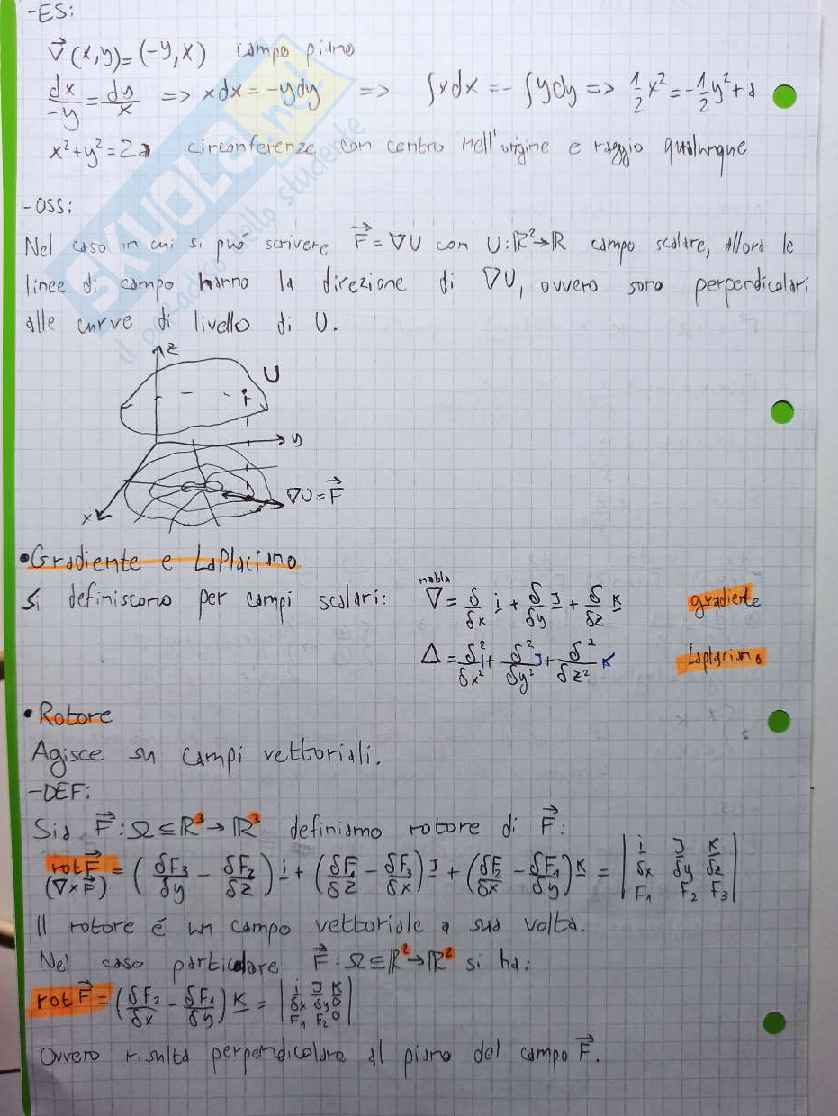 -ES:
V⃗(x,y)=(-y,x) campo piano
dx/-y = dy/x => xdx = -ydy => ∫xdx = -∫ydy => 1/2 x² = -1/2 y² + a
x²+y²=2a circonferenze con centro nell'origine e raggio qualunque
-OSS:
Nel caso in cui si può scrivere F⃗=∇U con U:ℝ²→ℝ campo scalare, allora le
linee di campo hanno la direzione di ∇U, ovvero sono perpendicolari
alle curve di livello di U.
z
U
y
∇U=F⃗
x
•Gradiente e Laplaciano
nabla
Si definiscono per campi scalari: ∇ = δ/δx i + δ/δy J + δ/δz K gradiente
Δ = δ²/δx² i + δ²/δy² J + δ²/δz² K Laplaciano
• Rotore
Agisce su campi vettoriali.
-DEF:
Sia F⃗:Ω⊆ℝ³→ℝ³ definiamo rotore di F⃗:
rot F⃗ = (δF₃/δy - δF₂/δz) i + (δF₁/δz - δF₃/δx) J + (δF₂/δx - δF₁/δy) K = | i J K
(∇×F⃗) δx δy δz
F₁ F₂ F₃ |
Il rotore é un campo vettoriale a sua volta.
Nel caso particolare F⃗:Ω⊆ℝ²→ℝ² si ha:
rot F⃗ = (δF₂/δx - δF₁/δy) K = | i J K
δx δy 0
F₁ F₂ 0 |
Ovvero risulta perpendicolare al piano del campo F⃗.